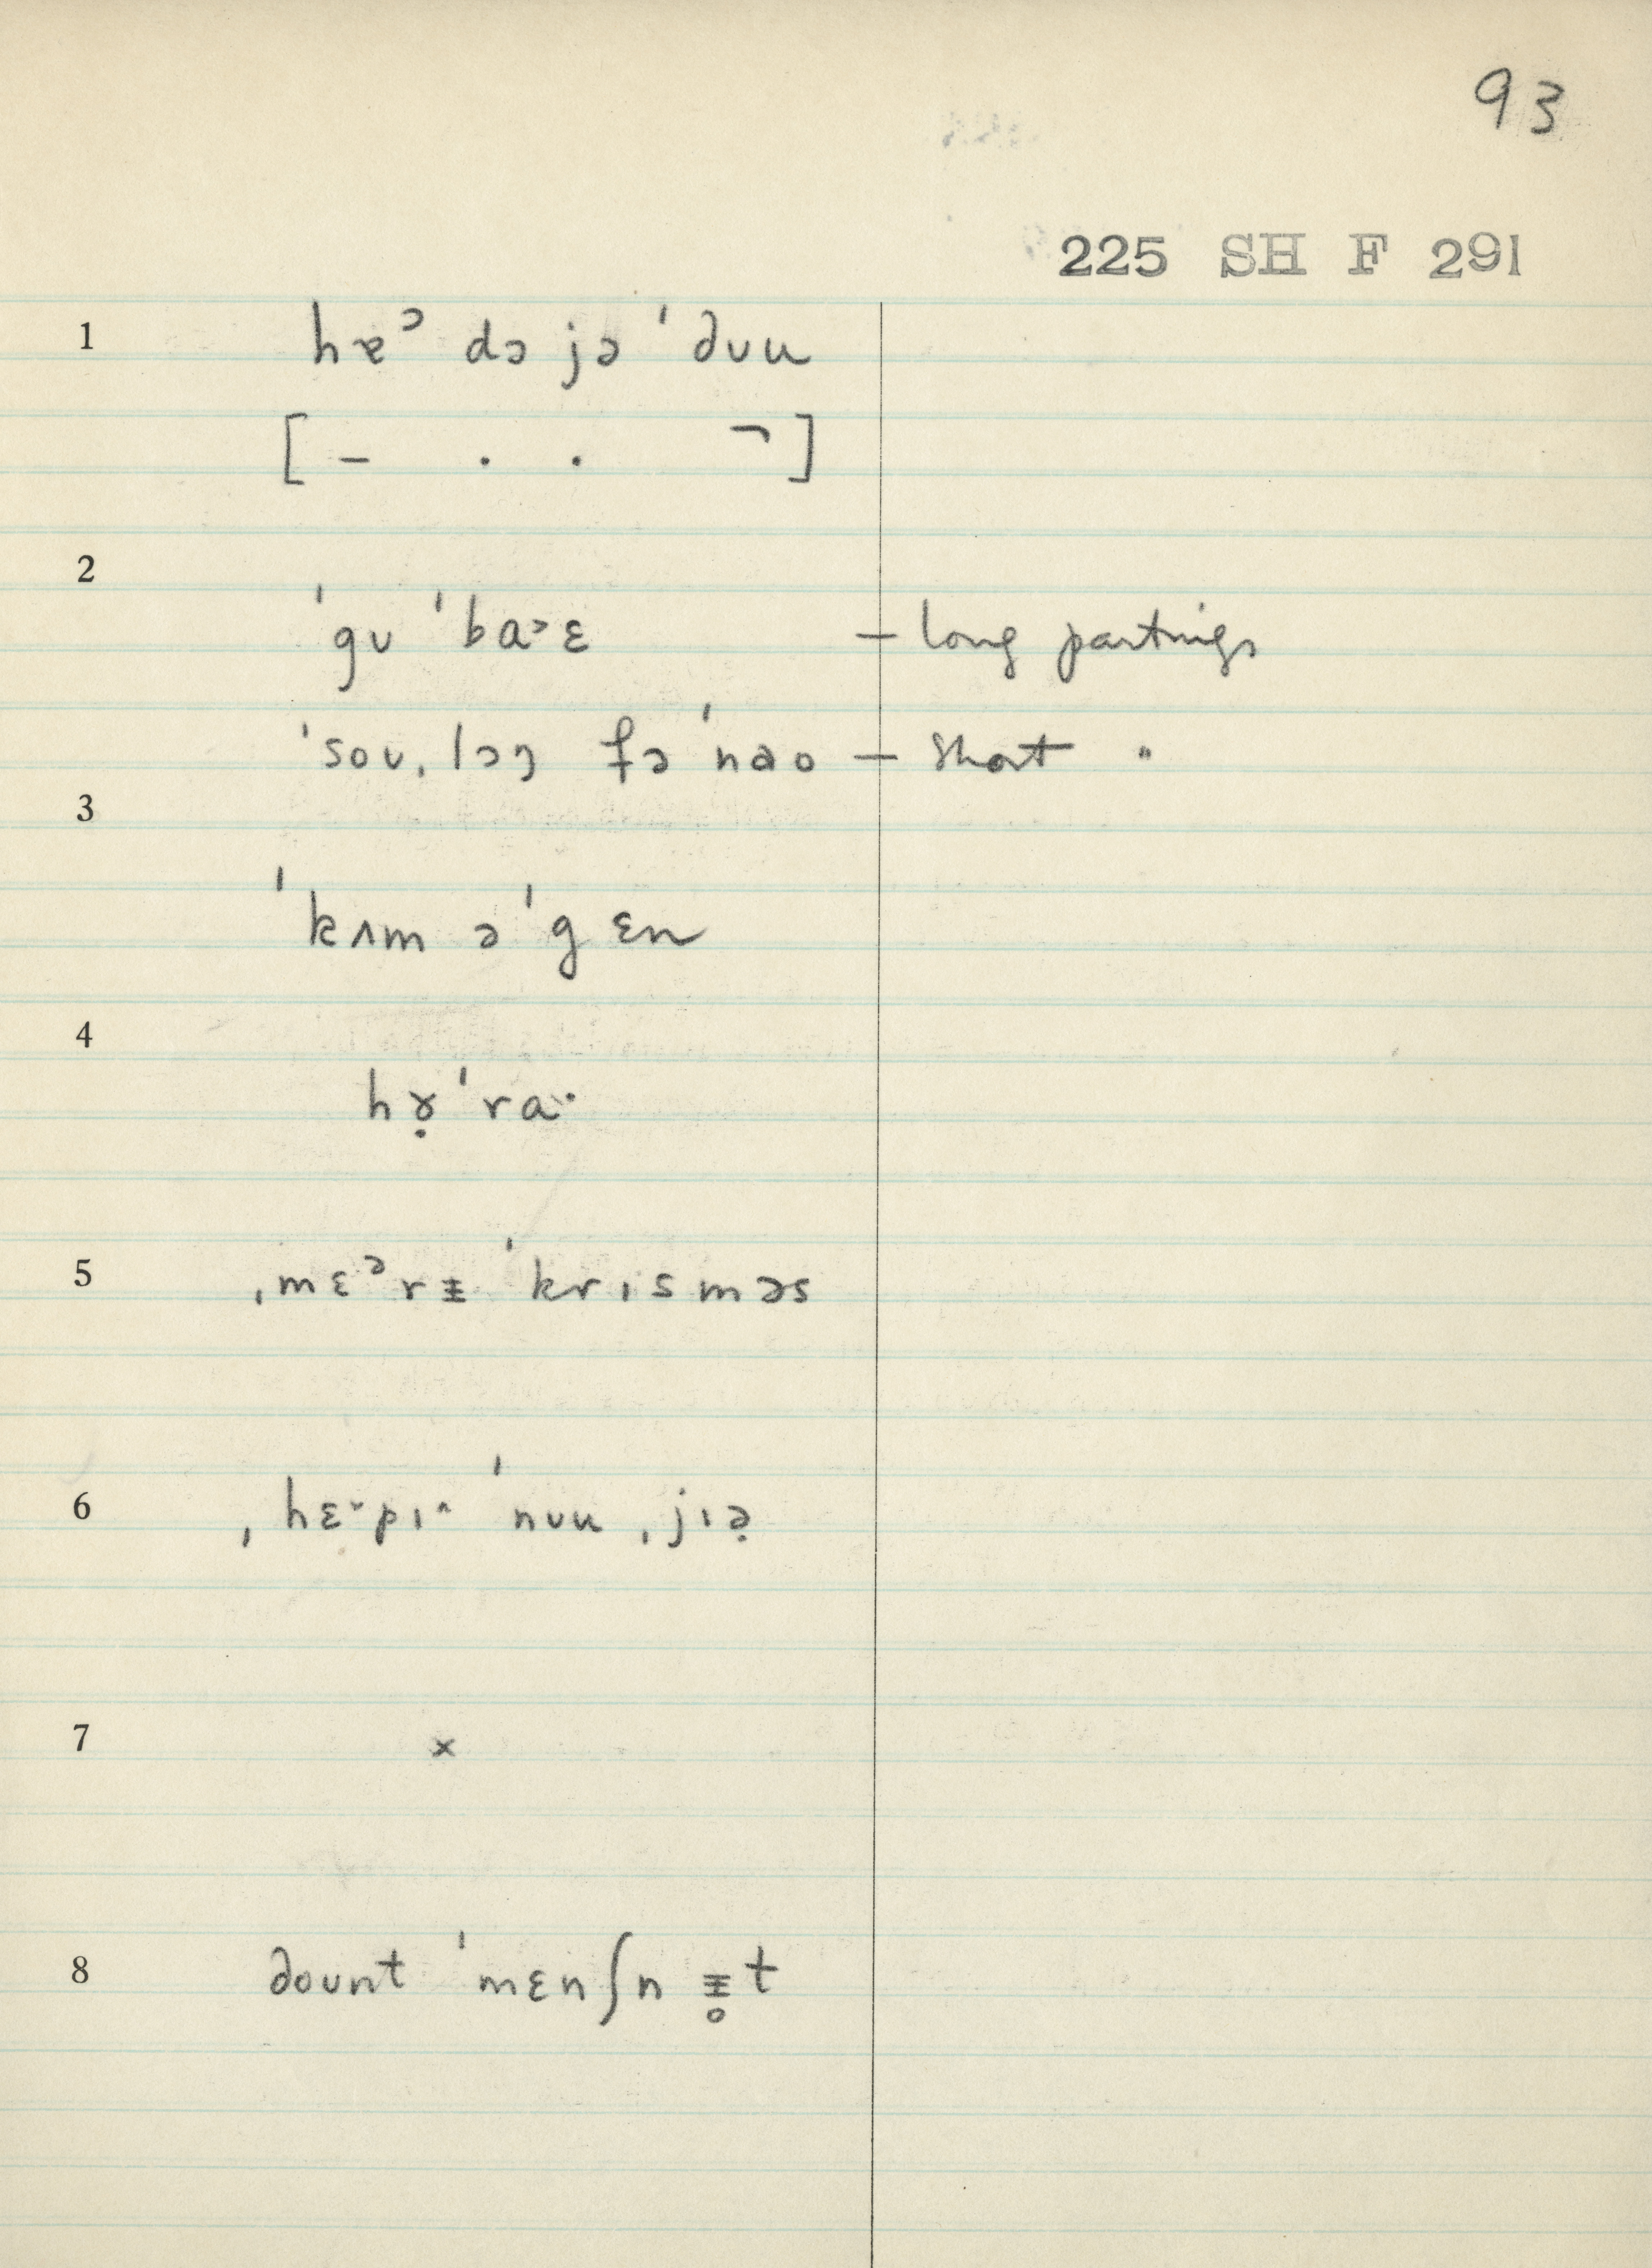 93
225 SH F 291
1 hɐᵓ də jə ˈduu
[ – . . ¬ ]
2
ˈgʊ ˈba˃ɛ – long partings
ˈsoʊˌlɔŋ fə ˈnɑo – short "
3
ˈkʌm ə ˈgɛn
4
hɤ̣ ˈraˑ
5 ˌmɛᵊrɪ̵ ˈkrɪsməs
6 ˌhɛ˅pɪ˄ ˈnʊu ˌjɪə̣
7 ×
8 doʊnt ˈmɛnʃn ɪ̵̥t